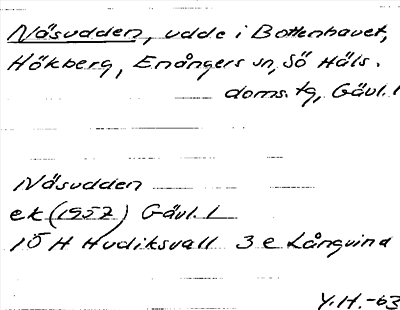 Näsudden, udde i Bottenhavet,
Hökberg, Enångers sn, Sö Häls.
doms. tg, Gävl. l
Näsudden
ek (1957) Gävl. l
15 H Hudiksvall 3 e Långvind
Y.H.-63